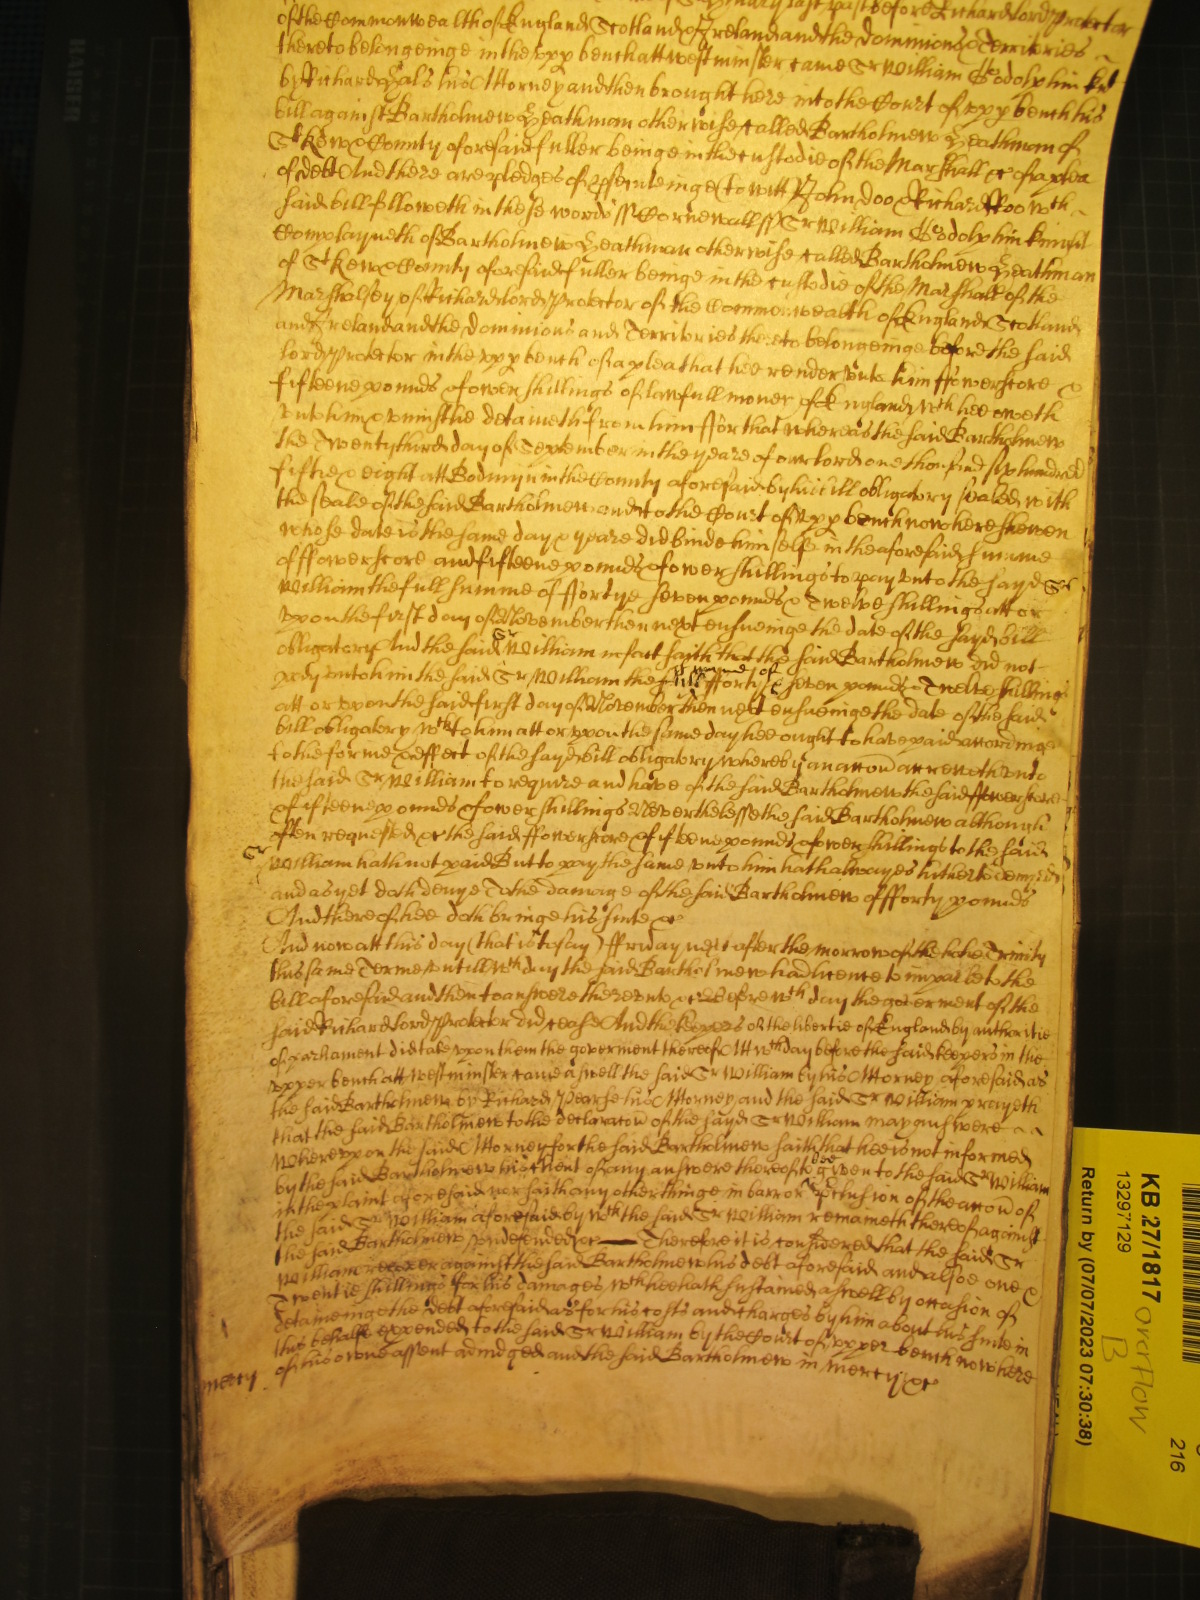 of St Hillary last past before Richard lord Protector
of the Common wealth of England Scotland & Ireland and the dominions & Territories
thereto belongeinge in the upp bench att westminster came Sr William Godolphin kt
by Richard his Attorney and then brought here into the Court of upp bench his
bill against Bartholmew Heathman otherwise called Bartholmew Heathman of
St Kew & County aforesaid fuller beinge in the custodie of the Marshall &c of a plea
of debt And there are pledges of prsecuteinge (to witt) John doo & Richard Roo wch
said bill followeth in these words ss Cornewall ss Sr William Godolphin knight
Complayneth of Bartholmew Heathman otherwise called Bartholmew Heathman
of St Kew & County aforesaid fuller beinge in the custodie of the Marshall of the
Marshalsey of Richard lord Protector of the Common wealth of England Scotland
and Ireland and the dominions and Territories thereto belongeinge before the said
lord Protector in the upp bench of a plea that hee render unto him ffowerscore &
fifteene pounds & fower shillings of lawfull money of England wch hee oweth
unto him & uniustlie detaineth from him ffor that whereas the said Bartholmew
the Twenty third day of September in the yeare of our lord one thousand six hundred
fiftie & eight att Bodmyn in the County aforesaid by his bill obligatory sealed with
the seale of the said Bartholmew and to the Court of upp bench now here shewen
whose date is the same day & yeare did binde himselfe in the aforesaid summe
of ffowerscore and fifteene pounds & fower shillings to pay unto the sayd Sr
William the full summe of ffortye seven pounds & Twelve shillings att or
upon the first day of November then next ensueinge the date of the sayd bill
obligatory And the said Sr William in fact saith that the said Bartholmew did not
pay unto him the said Sr William the summe of fforty & seven pounds & Twelve shillings
att or upon the said first day of November then next ensueinge the date of the said
bill obligatory wch to him att or upon the same day hee ought to have paid accordinge
to the forme & effect of the sayd bill obligatory whereby an accon accreweth unto
the said Sr William to require and have of the said Bartholmew the said ffowerscore
& fifteene pounds & fower shillings Neverthelesse the said Bartholmew although
often requested &c the said ffowerscore & fifteene pounds & fower shillings to the said
Sr William hath not paid But to pay the same unto him hath alwayes hitherto denyed
and as yet doth denye To the damage of the said Bartholmew of fforty pounds
And thereof hee doth bringe his suite &c
And now att this day (that is to say) ffriday next after the morrow of the holie Trinity
this same Terme untill wch day the said Bartholmew had licence to imparle to the
bill aforesaid and then to answere thereunto &c Before wch day the goverment of the
said Richard lord Protector did cease And the keepers of the libertie of England by authoritie
of parliament did take upon them the goverment thereof Att wch day before the said keepers in the
upper bench att westminster came aswell the said Sr William by his Attorney aforesaid as
the said Bartholmew by Richard Pearse his Attorney and the said Sr William prayeth
that the said Bartholmew to the declaracon of the sayd Sr William may answere
Whereupon the said Attorney for the said Bartholmew saith that hee is not informed
by the said Bartholmew his Client of any answere thereof to bee given to the said Sr William
in the plaint aforesaid nor saith any other thinge in barr or preclusion of the accon of
the said Sr William aforesaid by wch the said Sr William remaineth thereof against
the said Bartholmew undefended &c Therefore it is considered that the said Sr
William recover against the said Bartholmew his debt aforesaid and alsoe one &
Twentie shillings for his damages wch hee hath sustained aswell by occasion of
detaineinge the debt aforesaid as for his costs and charges by him about his suite in
this behalfe expended to the said Sr William by the Court of upper bench now here
of his owne assent adiudged and the said Bartholmew in mercy &c
mercy
KB 27/1817 overflow B
13297129
Return by (07/07/2023 07:30:38)
216